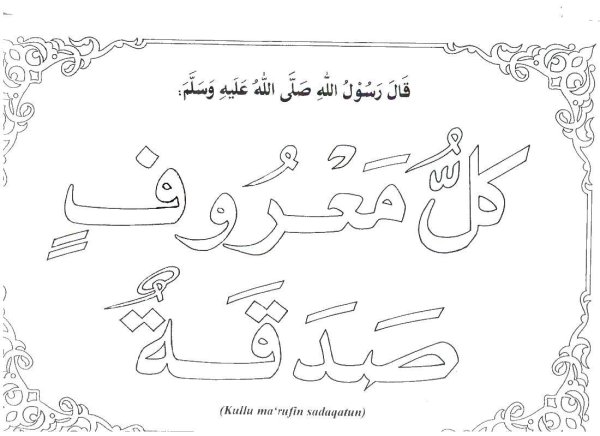 قَالَ رَسُوْلُ اللهِ صَلَّى اللهُ عَلَيْهِ وَسَلَّمَ:
كُلُّ مَعْرُوفٍ
صَدَقَةٌ
(Kullu ma‘rufin sadaqatun)